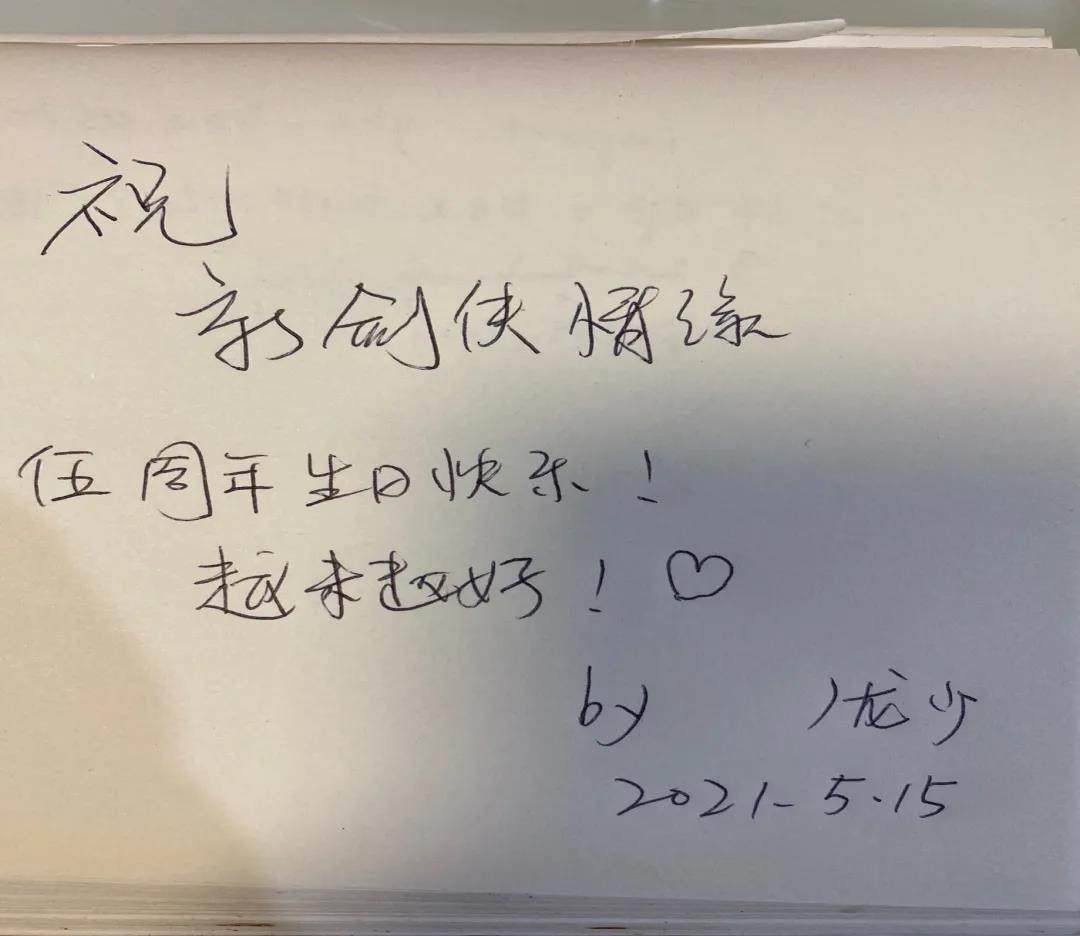 祝
新剑侠情缘
伍周年生日快乐！
越来越好！♡
by 龙少
2021.5.15